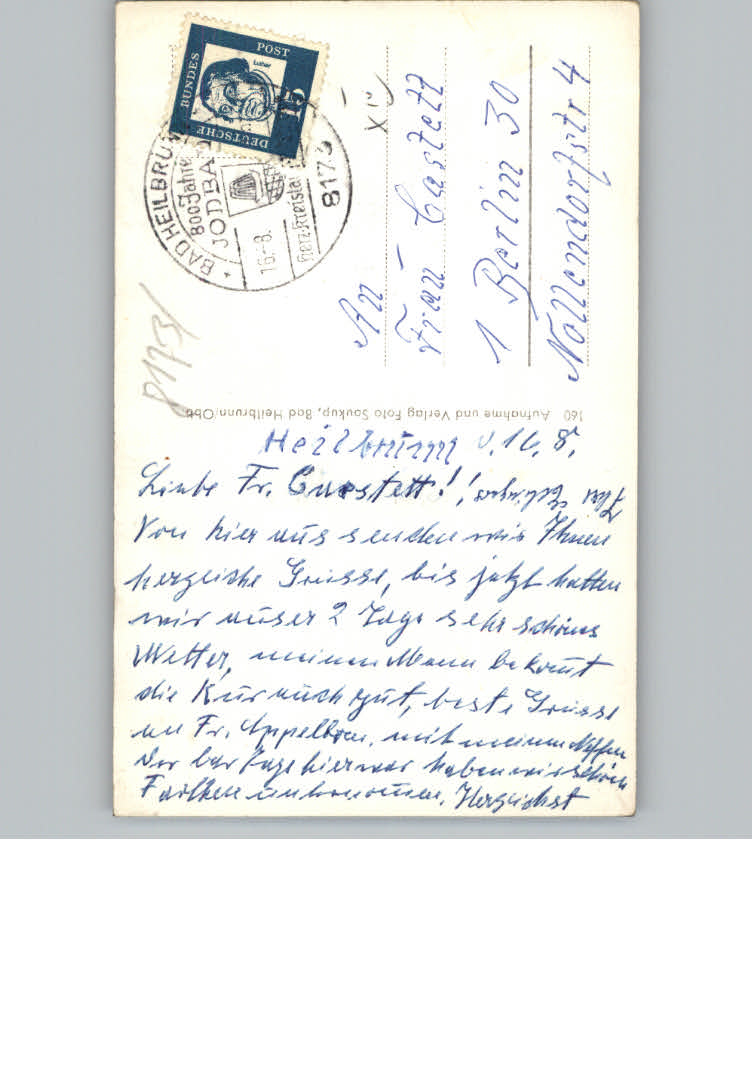 DEUTSCHE BUNDESPOST
Luther
15
BAD HEILBRUNN
800 Jahre
JODBAD
16.-8.
Herz-Kreisla
8173
8173/
An
Frau Castett
1 Berlin 30
Nollendorfstr 4
160 Aufnahme und Verlag Foto Soukup, Bad Heilbrunn/Obb
Heilbrunn d. 16. 8.
Liebe Fr. Castett!
Von hier aus senden wir Ihnen
herzliche Grüsse, bis jetzt hatten
wir auser 2 Tage sehr schönes
Wetter, meinem Mann bekomt
die Kur auch gut, beste Grüsse
an Fr. mit meinem Neffen
der Tage hier war haben wir schön
unternommen. Herzlichst